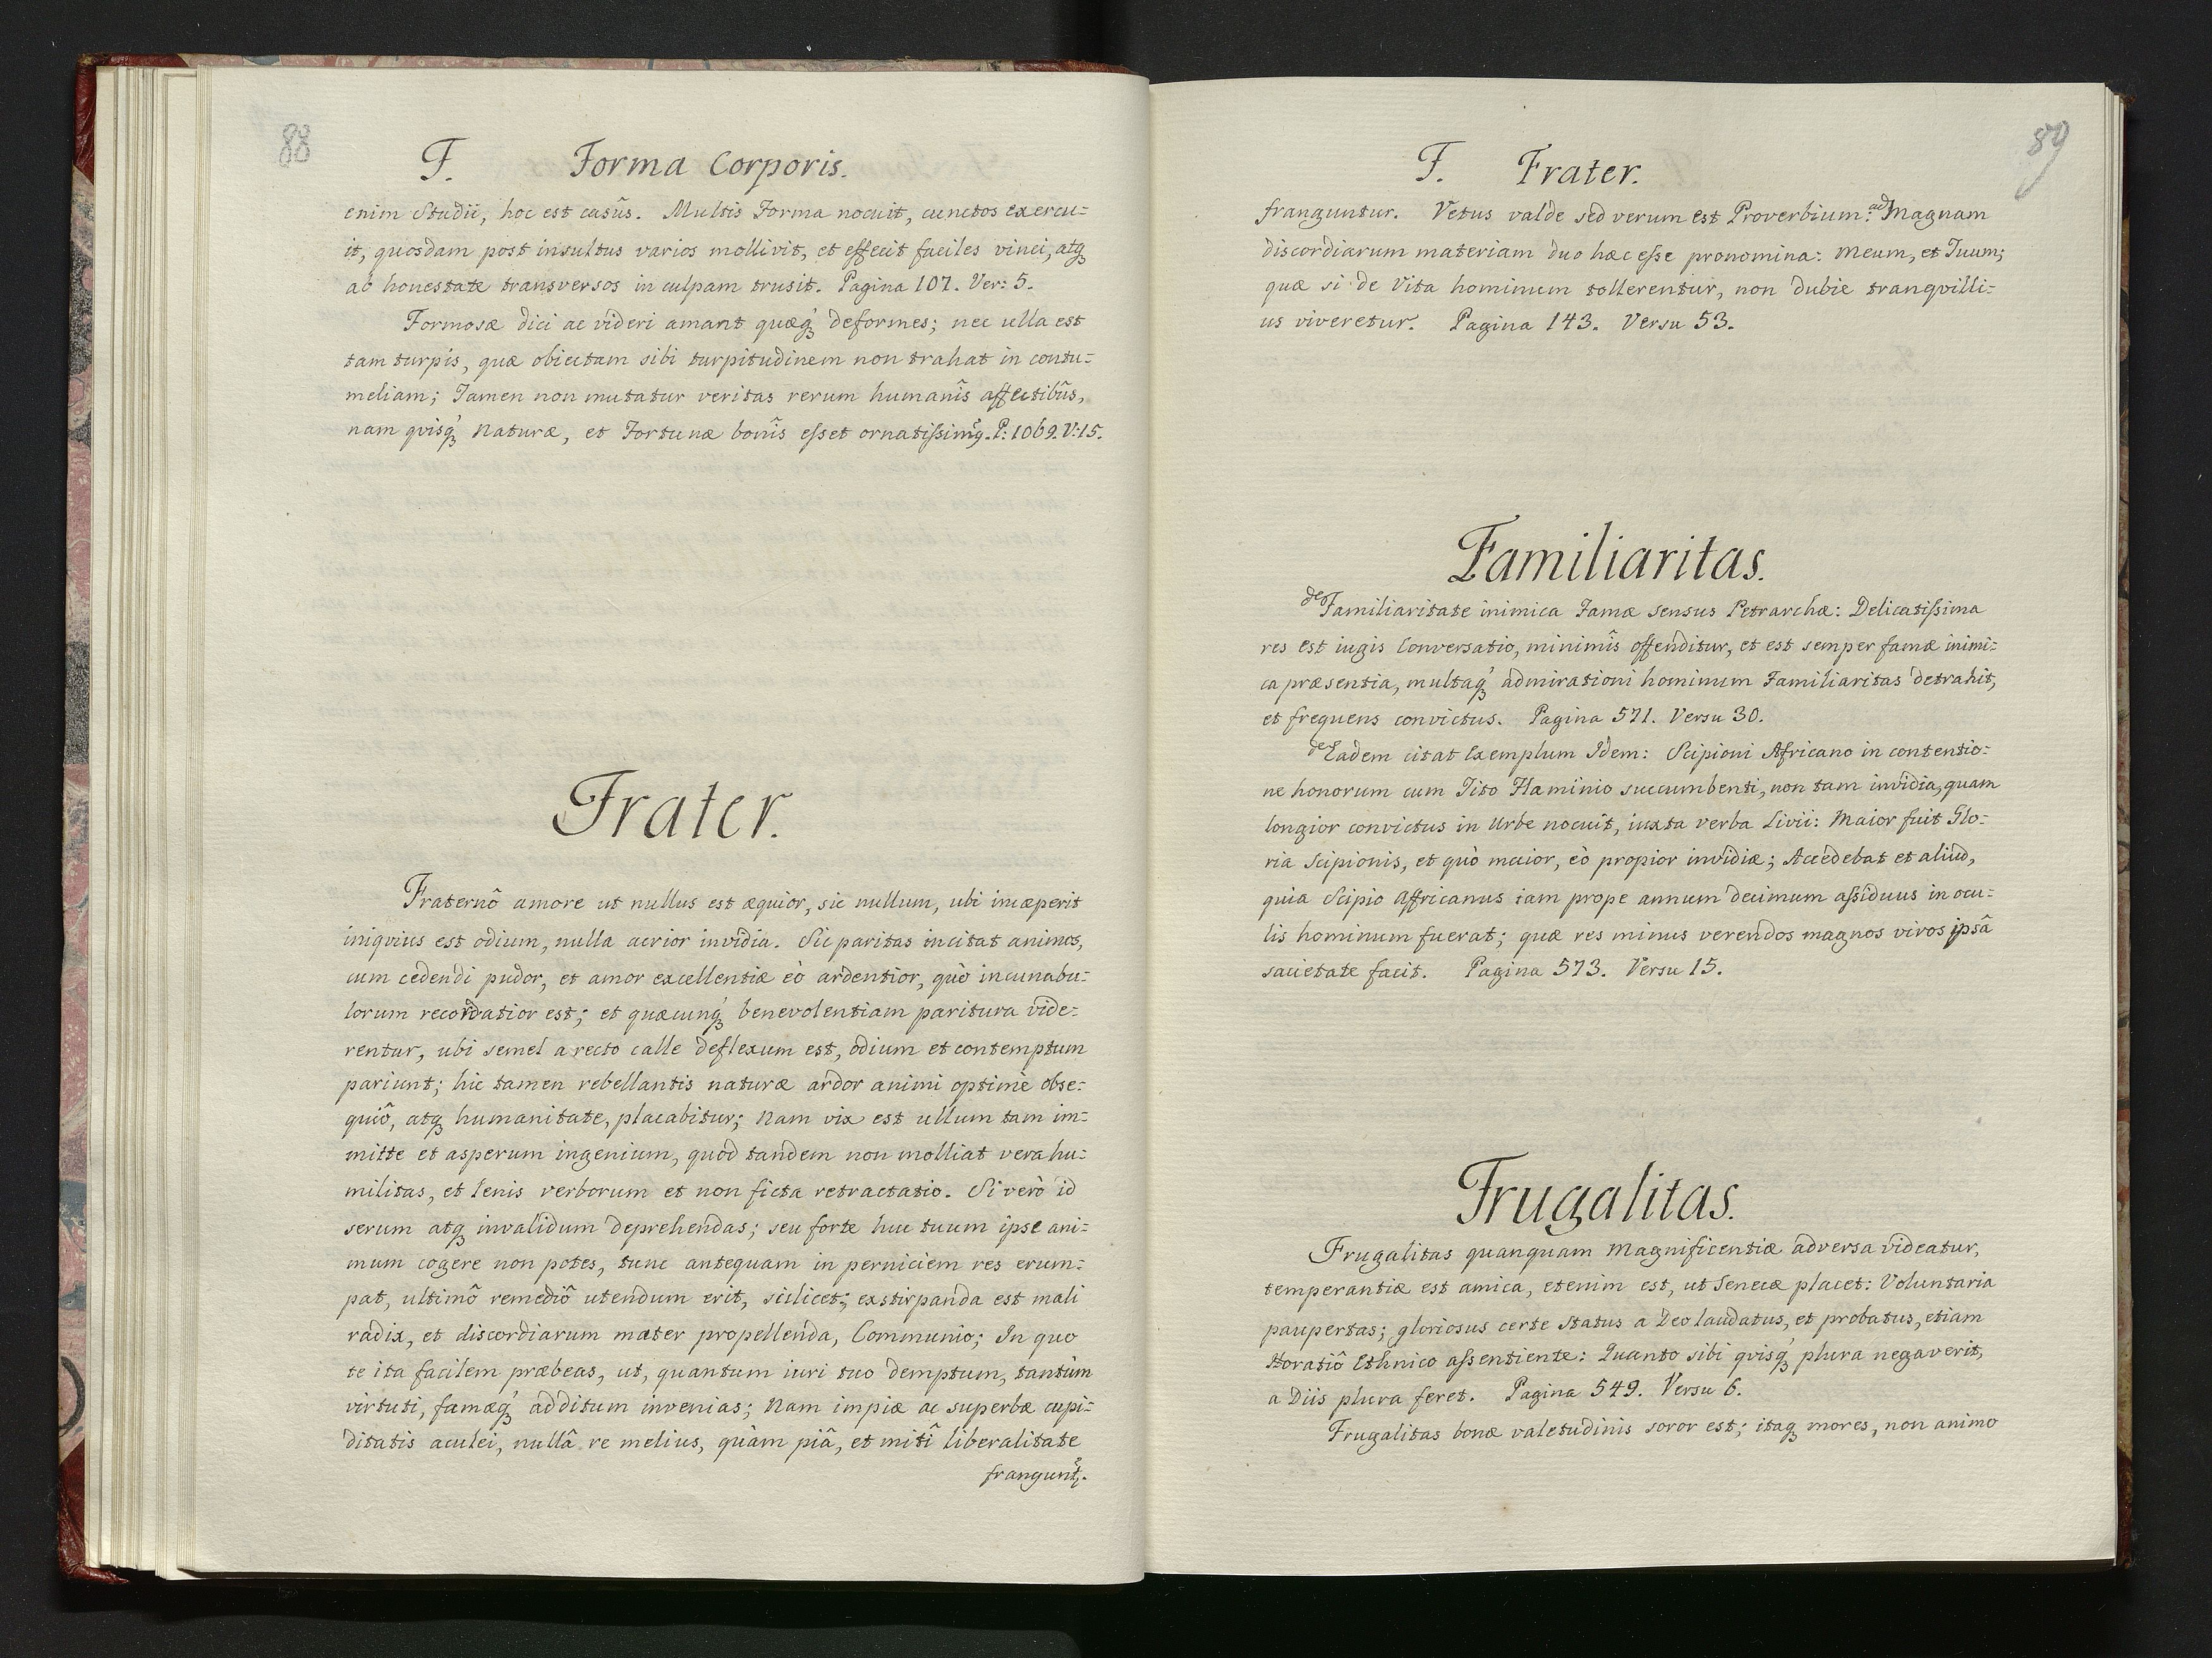 88
F. Forma Corporis.
enim Studii, hoc est casûs. Multis Forma nocuit, cunctos exercu=
it, quosdam post insultus varios mollivit, et effecit faciles vinci, atqꜗ
ab honestate transversos in culpam trusit. Pagina 107. Ver: 5.
Formosæ dici ac videri amant quæqꜗ deformes; nec ulla est
tam turpis, quæ obiectam sibi turpitudinem non trahat in contu=
meliam; Tamen non mutatur veritas rerum humanîs affectibûs,
nam quisqꜗ Naturæ, et Fortunæ bonîs esset ornatissimꝯ. P: 1069. V: 15.
Frater.
Fraternô amore ut nullus est æquior, sic nullum, ubi incæperit
iniqvius est odium, nulla acrior invidia. Sic paritas incitat animos,
cum cedendi pudor, et amor excellentiæ eò ardentior, quò incunabu=
lorum recordatior est; et quæcunqꜗ benevolentiam paritura vide=
rentur, ubi semel a recto calle deflexum est, odium et contemptum
pariunt; hic tamen rebellantis naturæ ardor animi optimè obse=
quiô, atqꜗ humanitate, placabitur; Nam vix est ullum tam im=
mitte et asperum ingenium, quod tandem non molliat vera hu=
militas, et lenis verborum et non ficta retractatio. Si verò id
serum atqꜗ invalidum deprehendas; seu forte huc tuum ipse ani=
mum cogere non potes, tunc antequam in perniciem res erum=
pat, ultimô remediô utendum erit, scilicet; exstirpanda est mali
radix, et discordiarum mater propellenda, Communio; In quo
te ita facilem præbeas, ut, quantum iuri tuo demptum, tantùm
virtuti, famæqꜗ additum invenias; Nam impiæ ac superbæ cupi=
ditatis aculei, nullâ re melius, quàm piâ, et mitî liberalitate
franguntꜗ.
89
F. Frater.
franguntur. Vetus valde sed verum est Proverbium: ad Magnam
discordiarum materiam duo hæc esse pronomina: Meum, et Tuum;
quæ si de Vita hominum tollerentur, non dubie tranqvilli=
us viveretur. Pagina 143. Versu 53.
Familiaritas.
de Familiaritate inimica Famæ sensus Petrarchæ: Delicatissima
res est iugis Conversatio, minimîs offenditur, et est semper famæ inimi=
ca præsentia, multaqꜗ admirationi hominum Familiaritas detrahit,
et frequens convictus. Pagina 571. Versu 30.
de Eadem citat Exemplum Idem: Scipioni Africano in contentio=
ne honorum cum Tito Flaminio succumbenti, non tam invidia, quam
longior convictus in Urbe nocuit, iuxta verba Livii: Maior fuit Glo=
ria Scipionis, et quò maior, eò propior invidiæ; Accedebat et aliud,
quia Scipio Affricanus iam prope annum decimum assiduus in ocu=
lis hominum fuerat; quæ res minus verendos magnos viros ipsâ
sacietate facit. Pagina 573. Versu 15.
Frugalitas.
Frugalitas quanquam Magnificentiæ adversa videatur,
temperantiæ est amica, etenim est, ut Senecæ placet: Voluntaria
paupertas; gloriosus certe status a Deo laudatus, et probatus, etiam
Horatiô Ethnico assentiente: Quanto sibi qvisqꜗ plura negaverit,
a Diis plura feret. Pagina 549. Versu 6.
Frugalitas bonæ valetudinis soror est; itaqꜗ mores, non animo